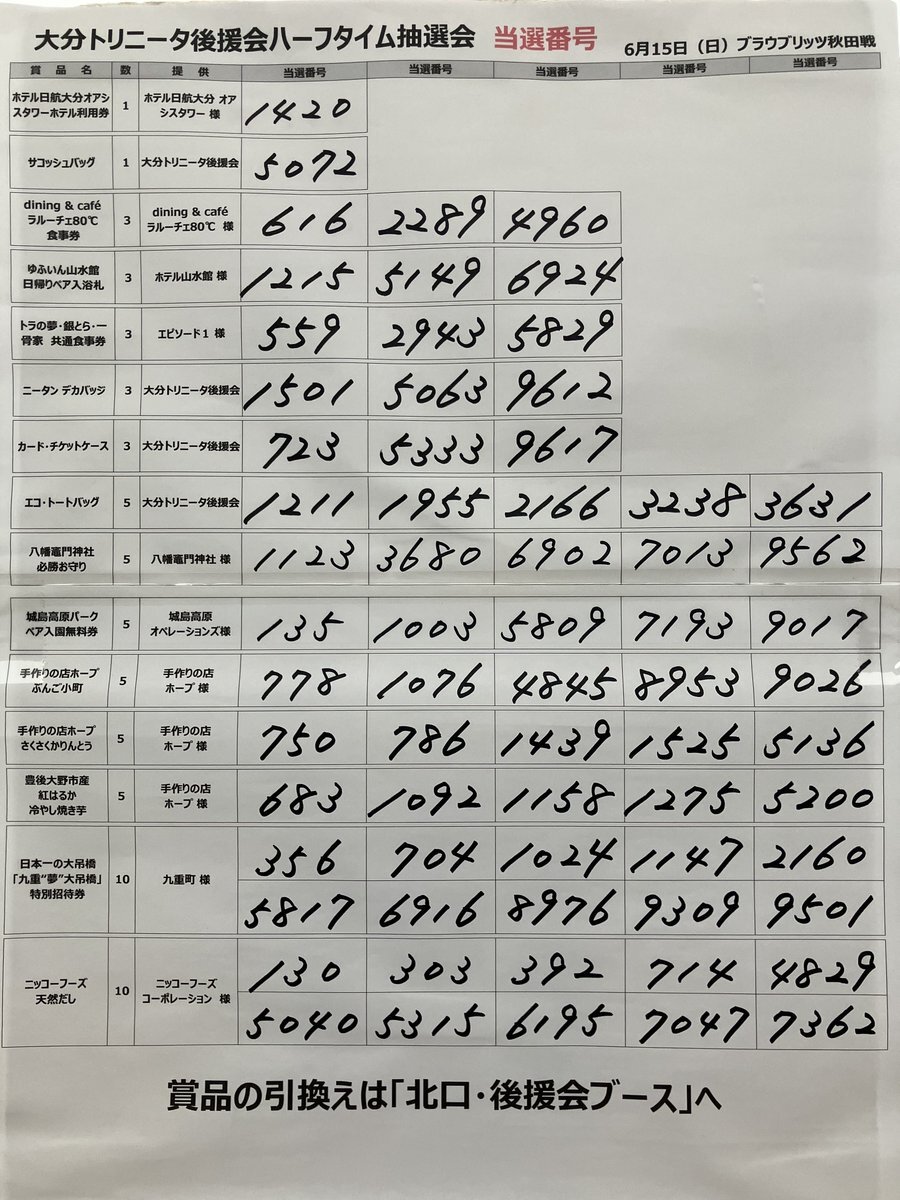 大分トリニータ後援会ハーフタイム抽選会 当選番号 6月15日（日）ブラウブリッツ秋田戦
賞 品 名 数 提 供 当選番号 当選番号 当選番号 当選番号 当選番号
ホテル日航大分オアシ
スタワーホテル利用券 1 ホテル日航大分 オア
シスタワー 様 1420
サコッシュバッグ 1 大分トリニータ後援会 5072
dining & café
ラルーチェ80℃
食事券 3 dining & café
ラルーチェ80℃ 様 616 2289 4960
ゆふいん山水館
日帰りペア入浴札 3 ホテル山水館 様 1215 5149 6924
トラの夢・銀とら・一
骨家 共通食事券 3 エピソード1 様 559 2943 5829
ニータン デカバッジ 3 大分トリニータ後援会 1501 5063 9612
カード・チケットケース 3 大分トリニータ後援会 723 5333 9617
エコ・トートバッグ 5 大分トリニータ後援会 1211 1955 2166 3238 3631
八幡竈門神社
必勝お守り 5 八幡竈門神社 様 1123 3680 6902 7013 9562
城島高原パーク
ペア入園無料券 5 城島高原
オペレーションズ様 135 1003 5809 7193 9017
手作りの店ホープ
ぶんご小町 5 手作りの店
ホープ 様 778 1076 4845 8953 9026
手作りの店ホープ
さくさくかりんとう 5 手作りの店
ホープ 様 750 786 1439 1525 5136
豊後大野市産
紅はるか
冷やし焼き芋 5 手作りの店
ホープ 様 683 1092 1158 1275 5200
日本一の大吊橋
「九重“夢”大吊橋」
特別招待券 10 九重町 様 356 704 1024 1147 2160
5817 6916 8976 9309 9501
ニッコーフーズ
天然だし 10 ニッコーフーズ
コーポレーション 様 130 303 392 714 4829
5040 5315 6195 7047 7362
賞品の引換えは「北口・後援会ブース」へ